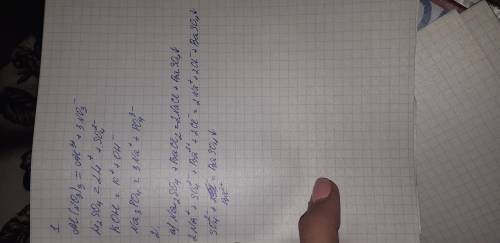 1
Al(NO3)3 = Al³⁺ + 3NO3⁻
H2SO4 = 2H⁺ + SO4²⁻
KOH = K⁺ + OH⁻
Na3PO4 = 3Na⁺ + PO4³⁻
2.
a) Na2SO4 + BaCl2 = 2NaCl + BaSO4↓
2Na⁺ + SO4²⁻ + Ba²⁺ + 2Cl⁻ = 2Na⁺ + 2Cl⁻ + BaSO4↓
SO4²⁻ + Ba²⁺ = BaSO4↓